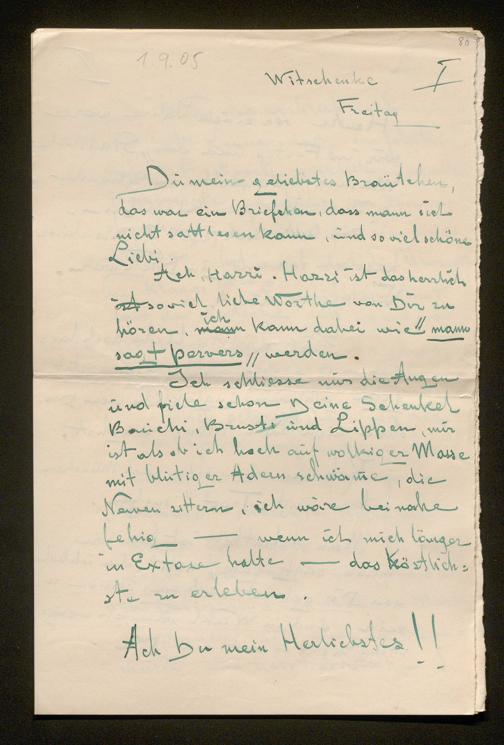 80
1.9.05
I
Witschenke
Freitag
Du mein geliebtes Bräutchen,
das war ein Briefchen, dass mann sich
nicht sattlesen kann, und so viel schöne
Liebi.
Ach, Harri. Harri ist das herrlich
ist so viel liebe Worthe von Dir zu
hören, mann ich kann dabei wie „mann
sagt pervers„ werden.
Ich schliesse nur die Augen
und fiele schon Deine Schenkel
Bauchi, Brusts und Lippen, mir
ist als ob ich hoch auf wolkiger Masse
mit blutiger Adern schwäme, die
Nerven zittern, ich wäre beinahe
fehig — wenn ich mich länger
in Extase halte — das köstlich=
ste zu erleben.
Ach Du mein Herlichstes!!